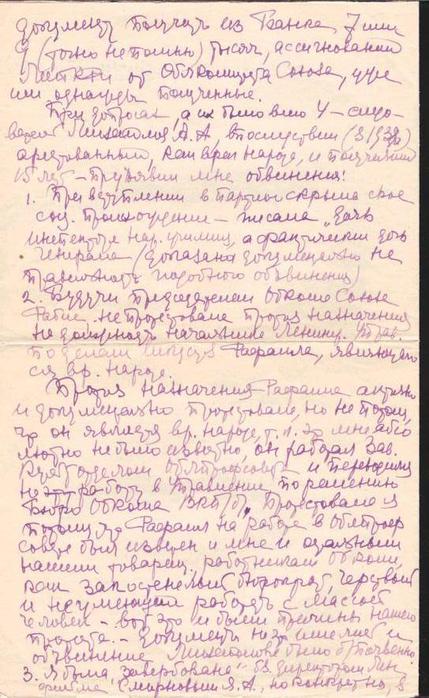 документ получить из Банка 7 или
(точно не помню) тысяч, ассигнований
от Обкомитета Союза, уже
ими однажды полученные.
При допросах, а их было всего 4 – следо-
ватель Михайлов А.А, впоследствии (в 1938)
арестованный, как враг народа, и получивший
15 лет – предъявил мне обвинения:
1. При вступлении в партию скрыла свое
соц. происхождение – писала "дочь
инспектора нар. училищ, а фактически дочь
генерала (доказана документально не
правильность подобного обвинения)
2. Будучи председателем обкома Союза
Рабис не протестовала против назначения
на должность начальника Ленингр. Управ.
по делам искусств Рафаила, являющего
ся вр. народа.
Против назначения Рафаила активно
и документально протестовала, но не потому,
что он является вр. народа, т.к. это мне абсо
лютно не было известно, он работал Зав.
Культотделом Облпрофсовета и переводился
на работу в Управление по решению
бюро Обкома ВКП/б/. Протестовала я
потому, что Рафаил на работе в Облпроф
совете был известен и мне и остальным
нашим товарищ. работникам обкома,
как закостенелый бюрократ, черствый
и не умеющий работать с массой
человек – вот это и были причины нашего
протеста. – Документы на это имелись и
обвинение Михайловым было оставлено.
3. Я была "завербована" б. директором Лен.
Смирновым Я.А, но конкретно, в